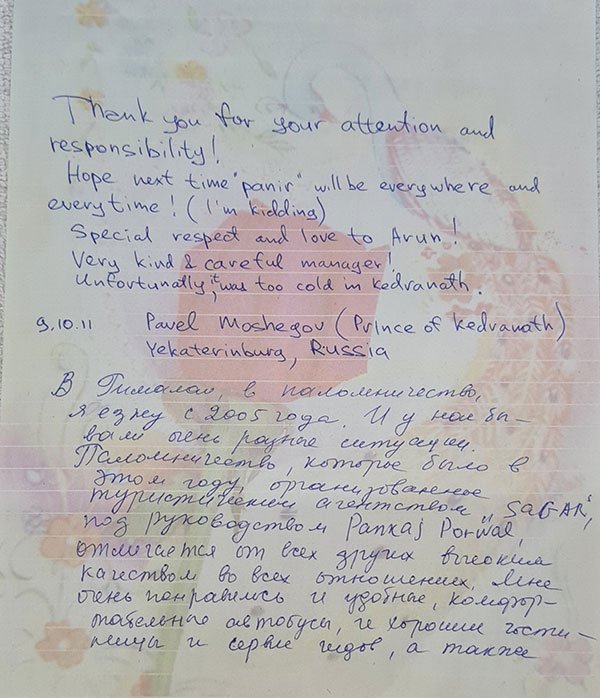 Thank you for your attention and
responsibility!
Hope next time "panir" will be everywhere and
everytime! (I'm kidding)
Special respect and love to Arun!
Very kind & careful manager!
Unfortunatly, it was too cold in kedranath.
9.10.11 Pavel Moshegov (Prince of kedranath)
Yekaterinburg, Russia
В Гималаи, в паломничество,
я езжу с 2005 года. И у нас бы-
вали очень разные ситуации.
Паломничество, которое было в
этом году, организованное
туристическим агентством „SAGAR",
под руководством Panxaj Porwal,
отличается от всех других высоким
качеством во всех отношениях. Мне
очень понравились и удобные, комфор-
табельные автобусы, и хорошие гости-
ницы и сервис гидов, а также